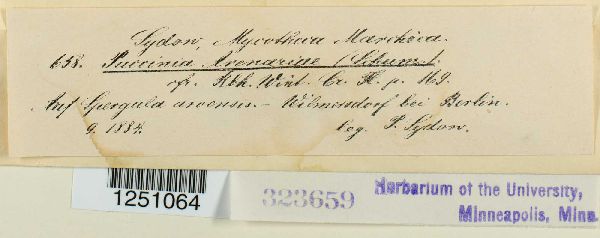 Sydow, Mycotheca Marchica.
638. Puccinia Arenariae (Schum.).
cfr. Rbh. Wint. Cr. Fl. p. 169.
Auf Spergula arvensis. – Wilmersdorf bei Berlin.
9. 1884. leg. P. Sydow.
1251064
323659
Herbarium of the University,
Minneapolis, Minn.